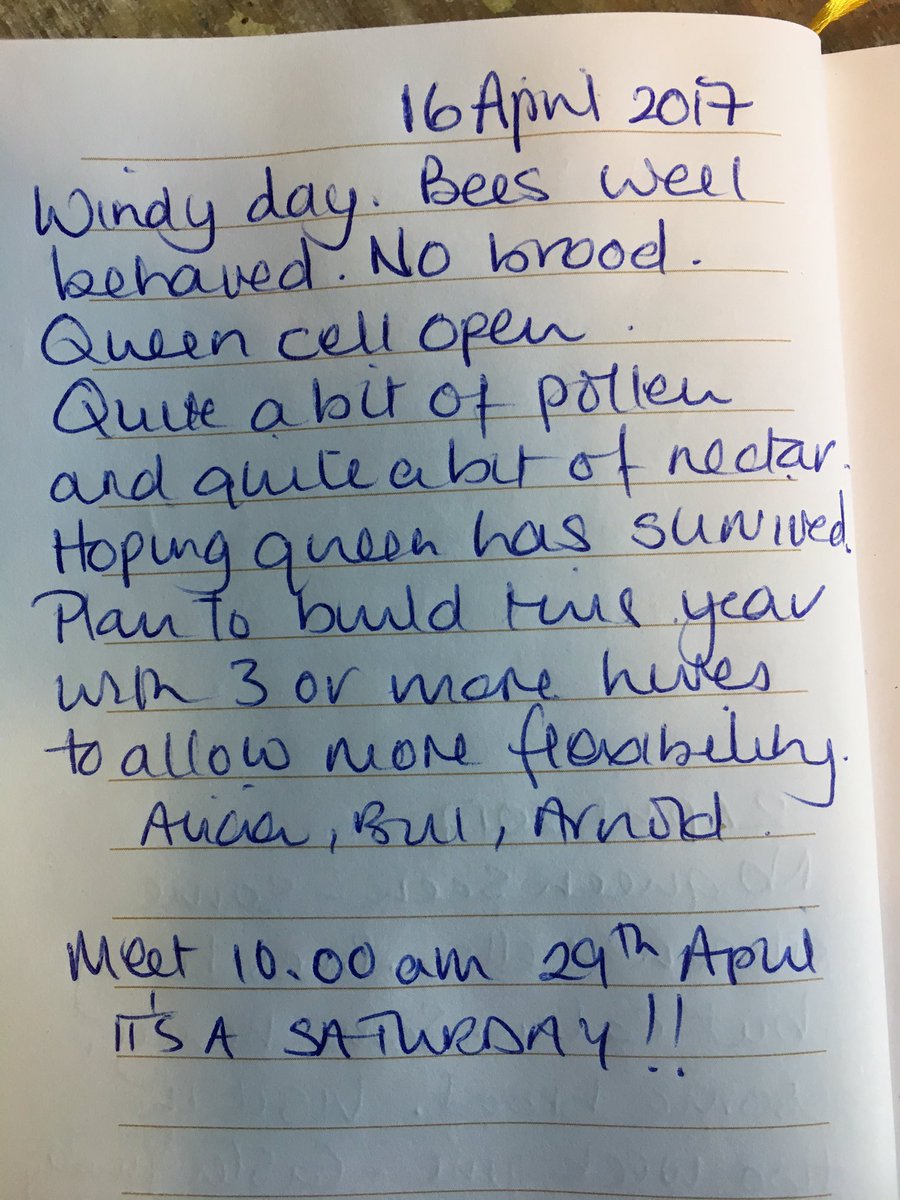 16 April 2017
Windy day. Bees well
behaved. No brood.
Queen cell open.
Quite a bit of pollen
and quite a bit of nectar.
Hoping queen has survived.
Plan to build this year
with 3 or more hives
to allow more flexibility.
Alicia, Bill, Arnold.
Meet 10.00 am 29th April
IT'S A SATURDAY!!